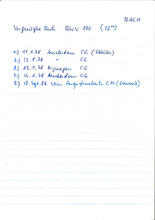 BACH
Vergnügte Ruh BWV 170 (23'")
1) 11.1.78 Amsterdam CG
2) 12.1.78 " CG
3) 13.1.78 Nijmegen CG
4) 14.1.78 Amsterdam CG
5) 17. Sept 86 Wien Augustinerkirche CM